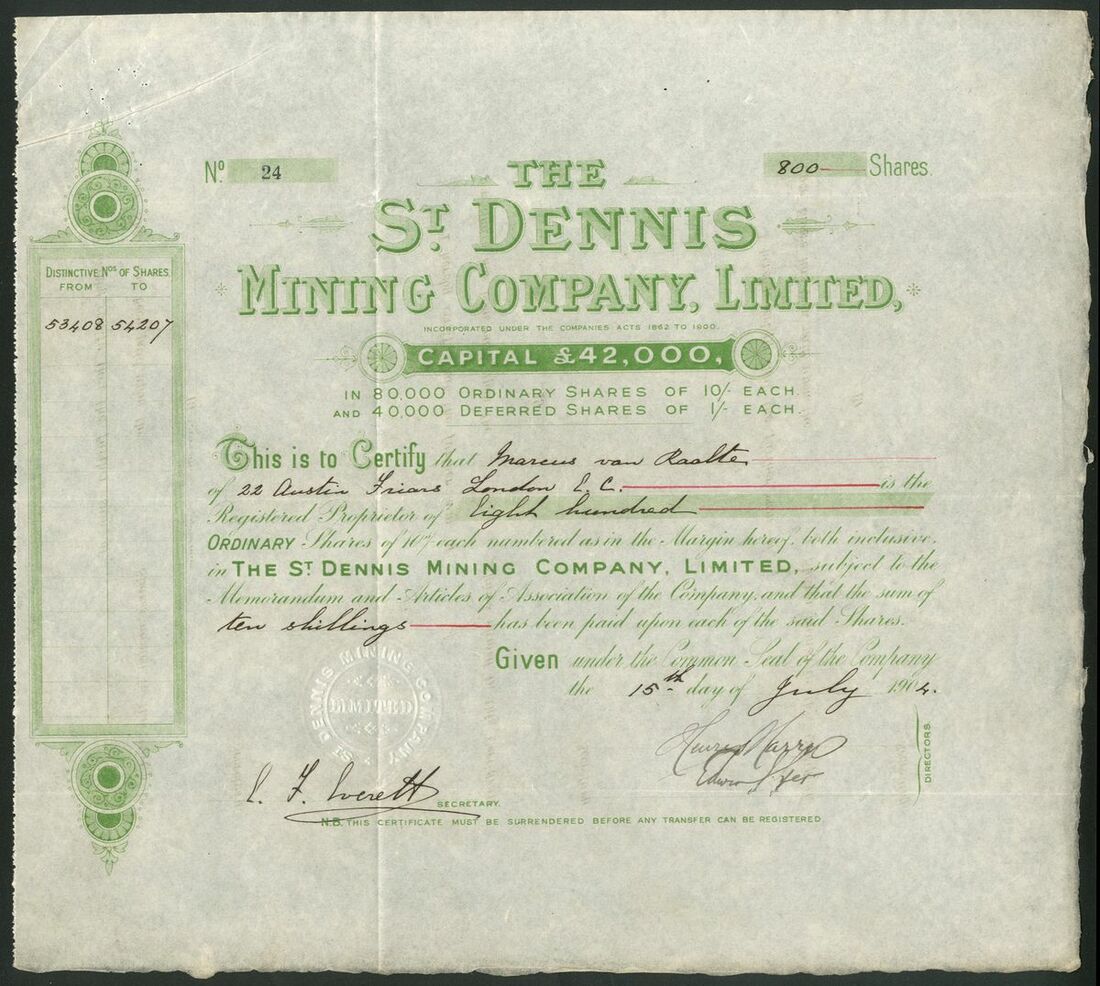 Nº 24
800 Shares.
THE
ST. DENNIS
MINING COMPANY, LIMITED,
INCORPORATED UNDER THE COMPANIES ACTS 1862 TO 1900.
CAPITAL £42,000,
IN 80,000 ORDINARY SHARES OF 10/- EACH.
AND 40,000 DEFERRED SHARES OF 1/- EACH.
DISTINCTIVE NOS OF SHARES.
FROM TO
53408 54207
This is to Certify that Marcus van Raalte
of 22 Austin Friars London E.C. is the
Registered Proprietor of Eight hundred
ORDINARY Shares of 10/- each numbered as in the Margin hereof, both inclusive,
in THE ST DENNIS MINING COMPANY, LIMITED, subject to the
Memorandum and Articles of Association of the Company, and that the sum of
ten shillings has been paid upon each of the said Shares.
Given under the Common Seal of the Company
the 15th day of July 1904.
ST DENNIS MINING COMPANY
LIMITED
DIRECTORS.
E. F. Everett
SECRETARY.
N.B. THIS CERTIFICATE MUST BE SURRENDERED BEFORE ANY TRANSFER CAN BE REGISTERED.